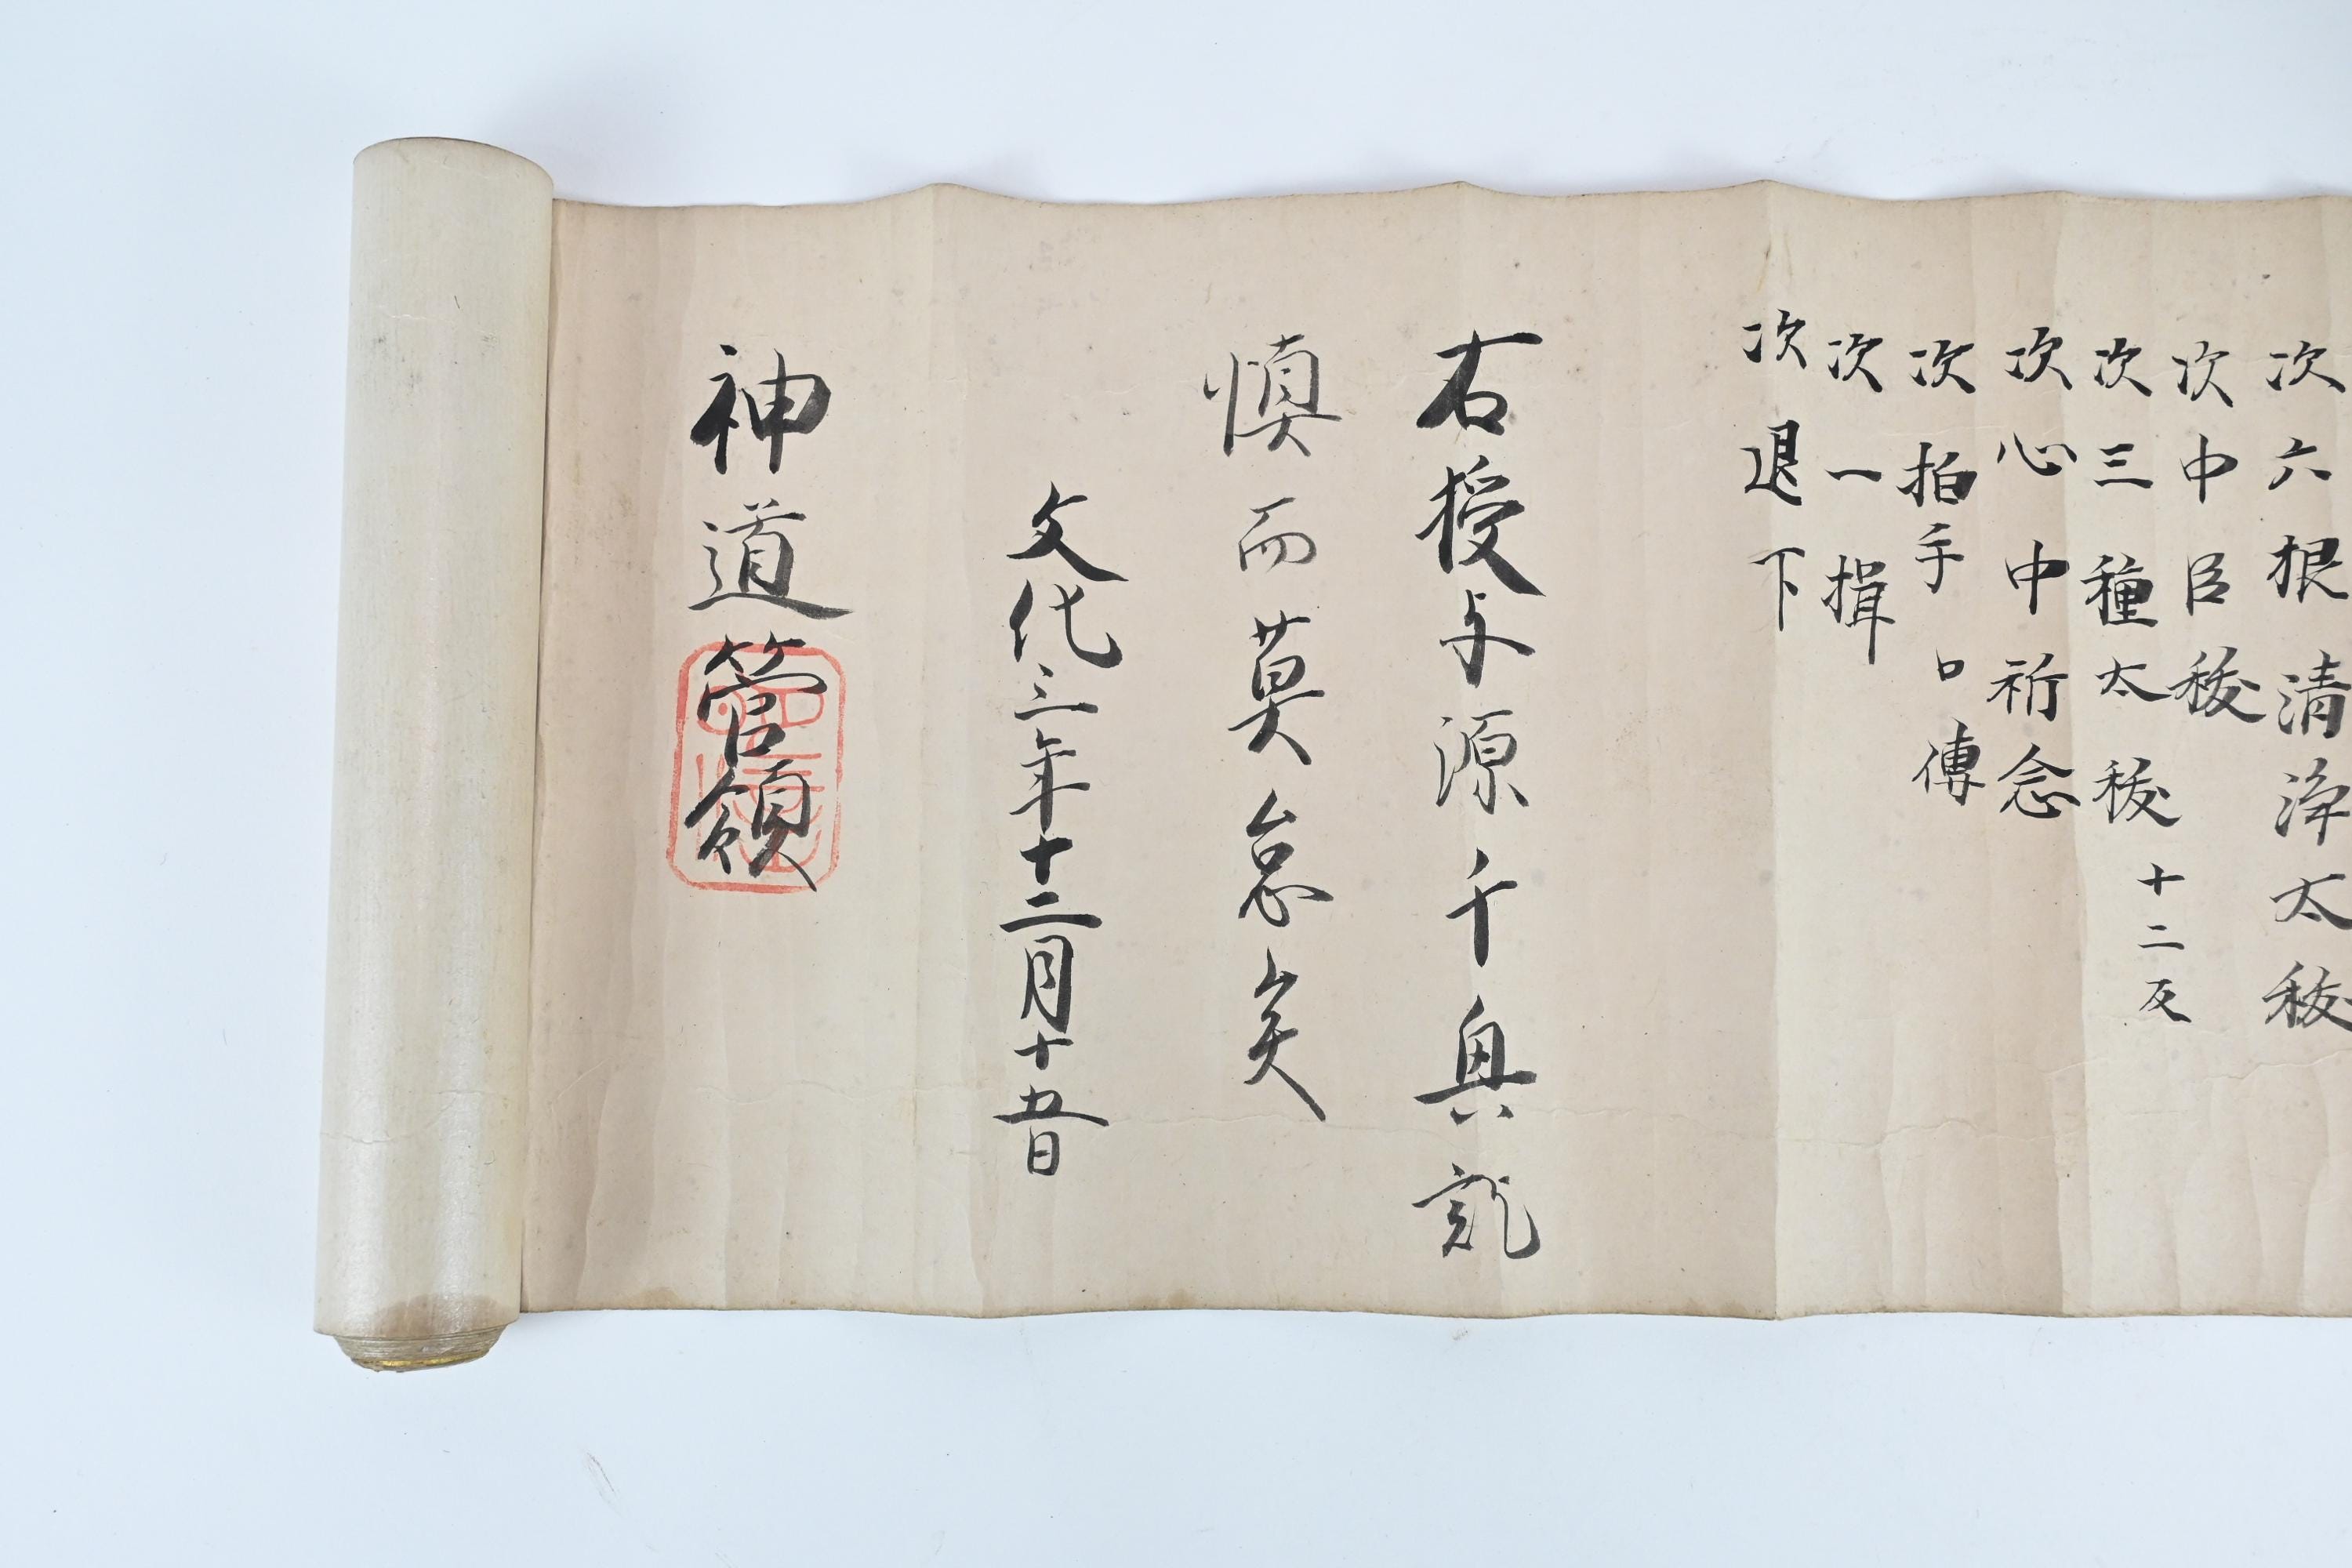 次六根清浄太秡
次中臣秡
次三種太秡 十二反
次心中祈念
次拍手 口傳
次一揖
次退下
右授与源千奥訖
慎而莫怠矣
文化三年十二月十五日
神道管領